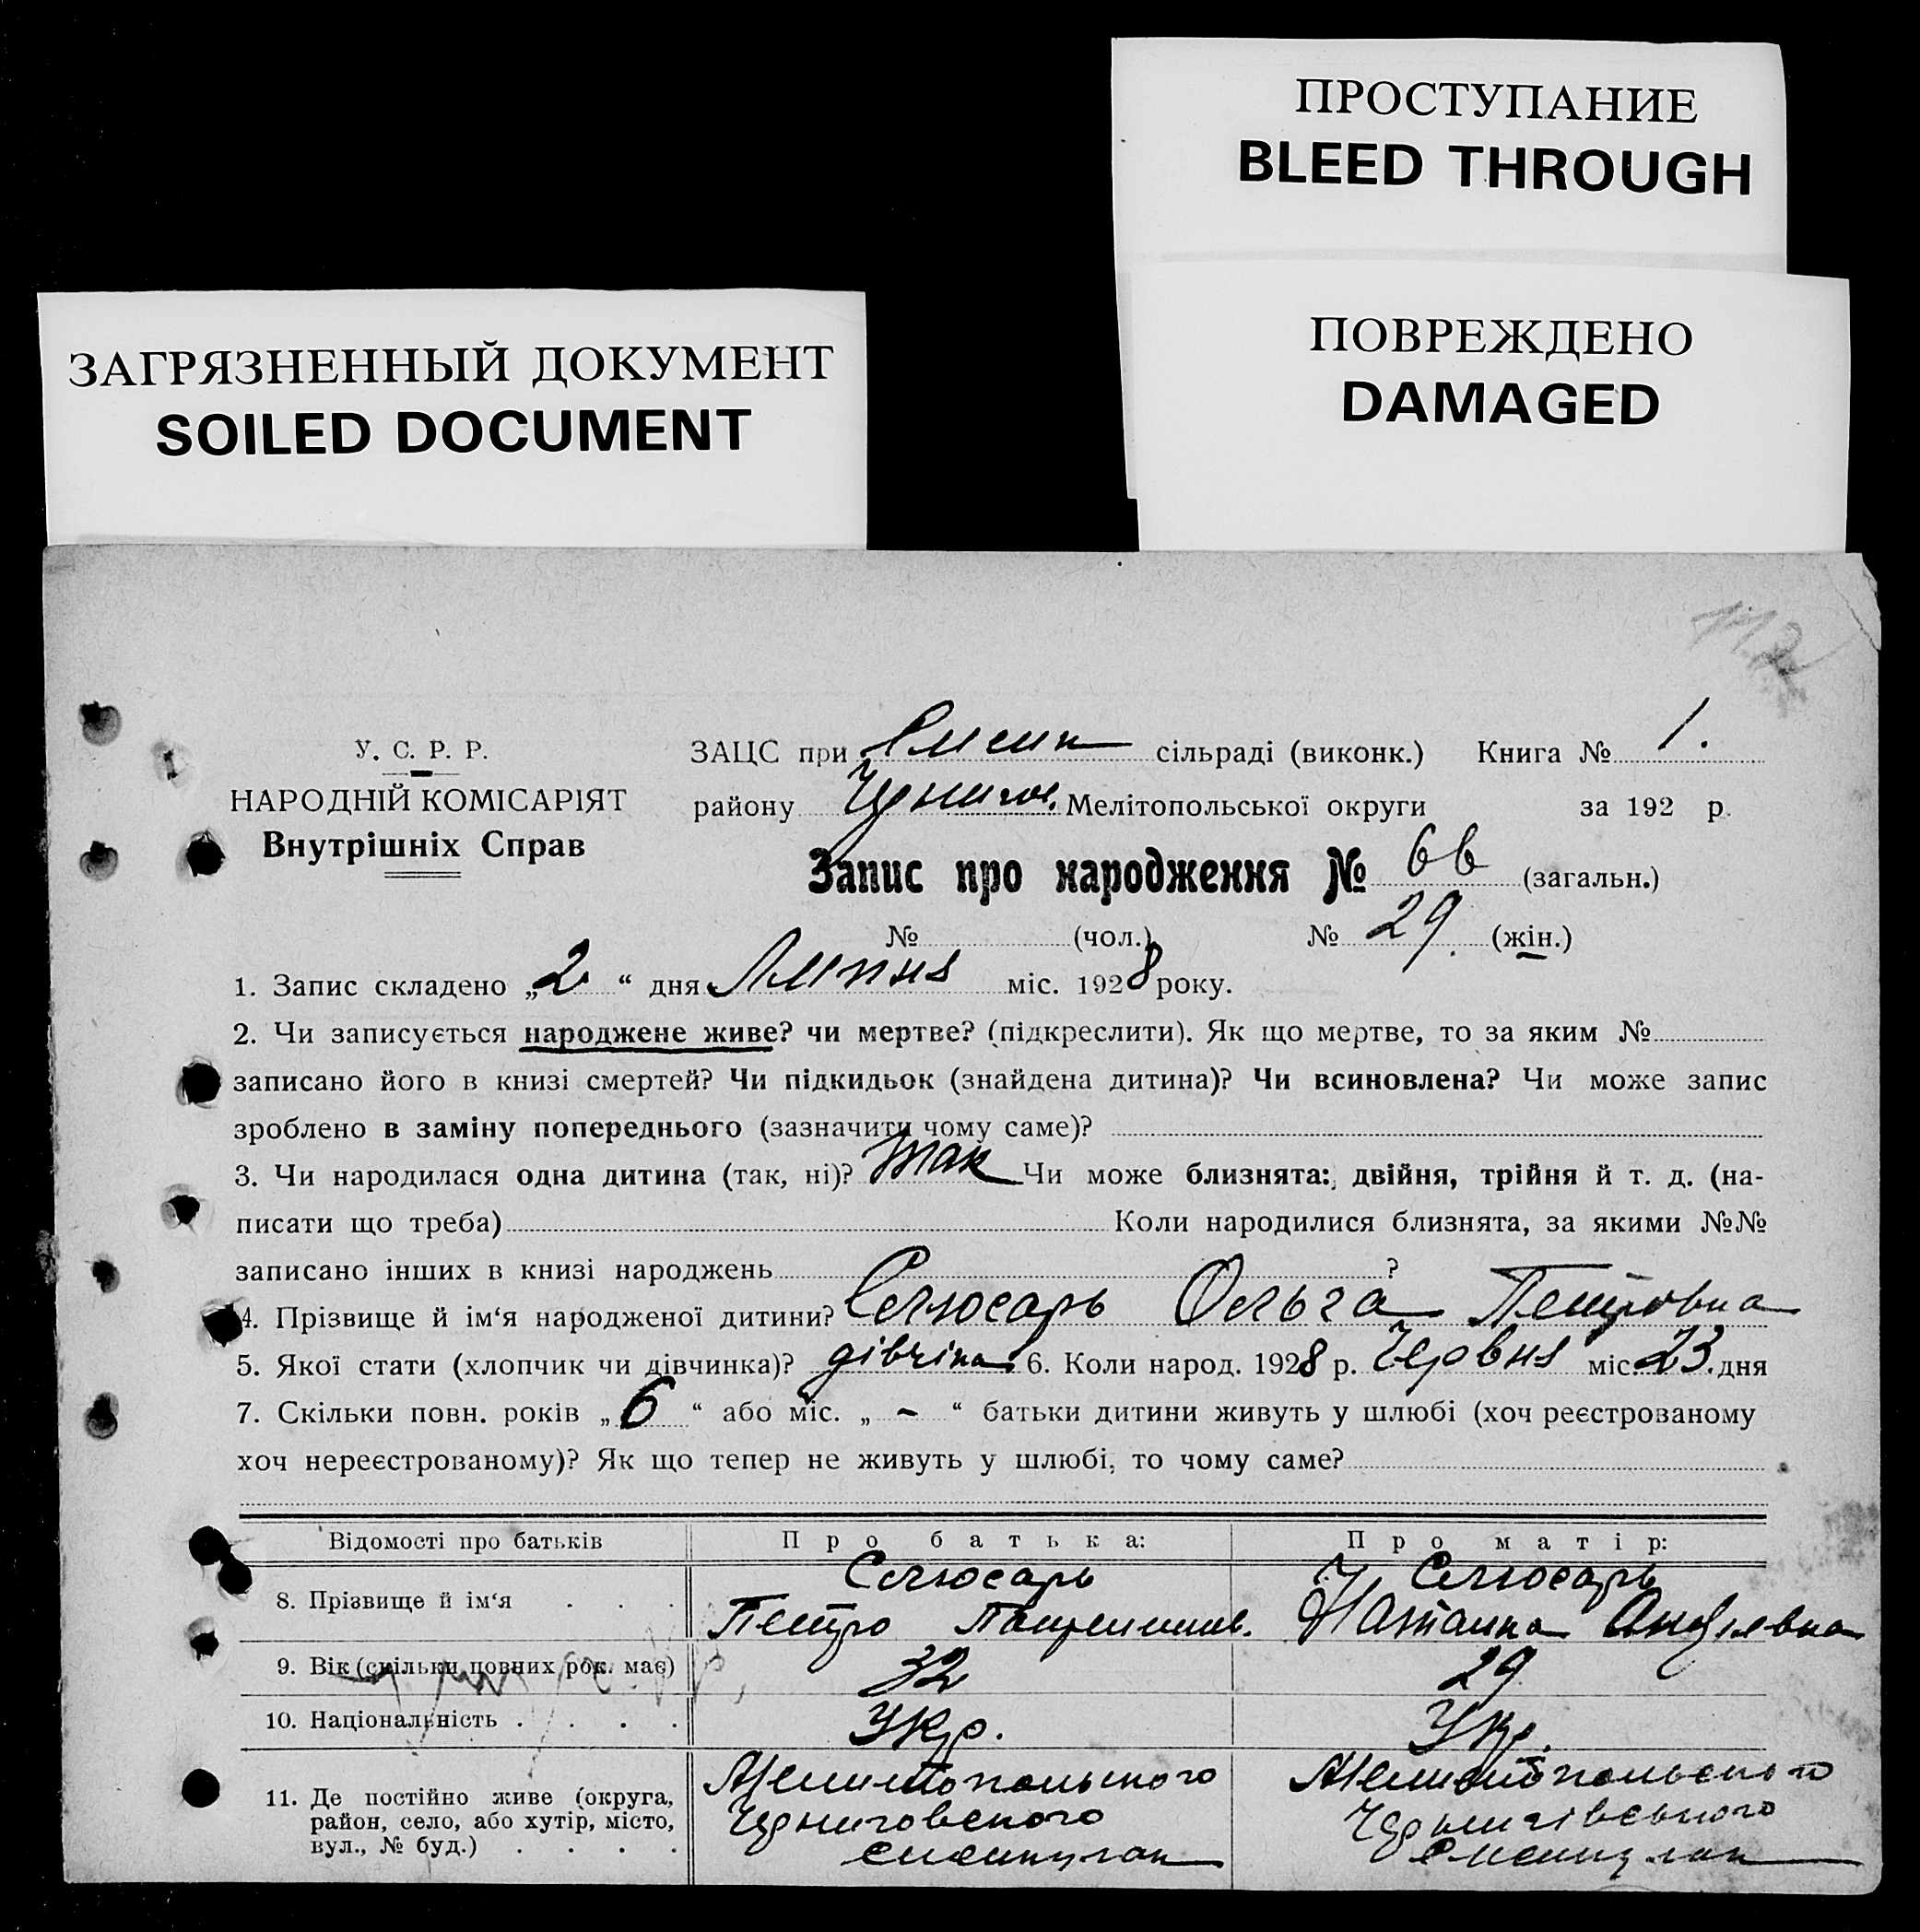 ПРОСТУПАНИЕ
BLEED THROUGH
ПОВРЕЖДЕНО
DAMAGED
ЗАГРЯЗНЕННЫЙ ДОКУМЕНТ
SOILED DOCUMENT
112
У. С. Р. Р.
НАРОДНІЙ КОМІСАРІЯТ
Внутрішніх Справ
ЗАЦС при сільраді (виконк.) Книга № 1.
району Чернигов. Мелітопольської округи за 192 р.
Запис про народження № 66 (загальн.)
№ (чол.) № 29. (жін.)
1. Запис складено „2“ дня Липня міс. 1928 року.
2. Чи записується народжене живе? чи мертве? (підкреслити). Як що мертве, то за яким №
записано його в книзі смертей? Чи підкидьок (знайдена дитина)? Чи всиновлена? Чи може запис
зроблено в заміну попереднього (зазначити чому саме)?
3. Чи народилася одна дитина (так, ні)? так Чи може близнята: двійня, трійня й т. д. (на-
писати що треба) Коли народилися близнята, за якими №№
записано інших в книзі народжень ?
4. Прізвище й ім‘я народженої дитини? Слюсарь Ольга Петровна
5. Якої стати (хлопчик чи дівчинка)? дівчіна 6. Коли народ. 1928 р. Червня міс. 23. дня
7. Скільки повн. років „6“ або міс. „-“ батьки дитини живуть у шлюбі (хоч реєстрованому
хоч нереєстрованому)? Як що тепер не живуть у шлюбі, то чому саме?
Відомості про батьків Про батька: Про матір:
8. Прізвище й ім‘я . . . Слюсарь Слюсарь
Петро Наталка
9. Вік (скільки повних рок. має) 32 29
10. Національність . . . . Укр. Укр.
11. Де постійно живе (округа,
район, село, або хутір, місто,
вул., № буд.) . . . .
Мелитопольского Мелитопольского
Черниговского Чернигівського